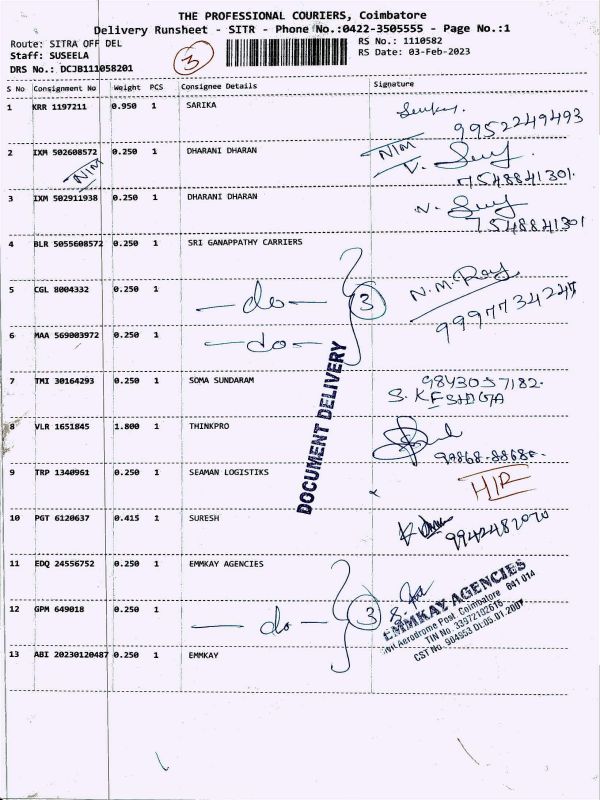 THE PROFESSIONAL COURIERS, Coimbatore
Delivery Runsheet - SITR - Phone No.:0422-3505555 - Page No.:1
Route: SITRA OFF DEL
Staff: SUSEELA
DRS No.: DCJB111058201
3
RS No.: 1110582
RS Date: 03-Feb-2023
S No Consignment No Weight PCS Consignee Details Signature
1 KRR 1197211 0.950 1 SARIKA
9952249493
2 IXM 502608572 0.250 1 DHARANI DHARAN
NIM
NIM
7548841301.
3 IXM 502911938 0.250 1 DHARANI DHARAN
7548841301
4 BLR 5055608572 0.250 1 SRI GANAPPATHY CARRIERS
5 CGL 8004332 0.250 1 -do- 3 N.M.Roy
9997734247
6 MAA 569003972 0.250 1 -do-
DOCUMENT DELIVERY
7 TMI 30164293 0.250 1 SOMA SUNDARAM
9843057182.
8 VLR 1651845 1.800 1 THINKPRO
9 TRP 1340961 0.250 1 SEAMAN LOGISTIKS
10 PGT 6120637 0.415 1 SURESH
9942482070
11 EDQ 24556752 0.250 1 EMMKAY AGENCIES
12 GPM 649018 0.250 1 -do- 3
EMMKAY AGENCIES
Civil Aerodrome Post, Coimbatore 641 014
TIN No. 33972102615
CST No. 904553 Dt.05.01.2007
13 ABI 20230120487 0.250 1 EMMKAY